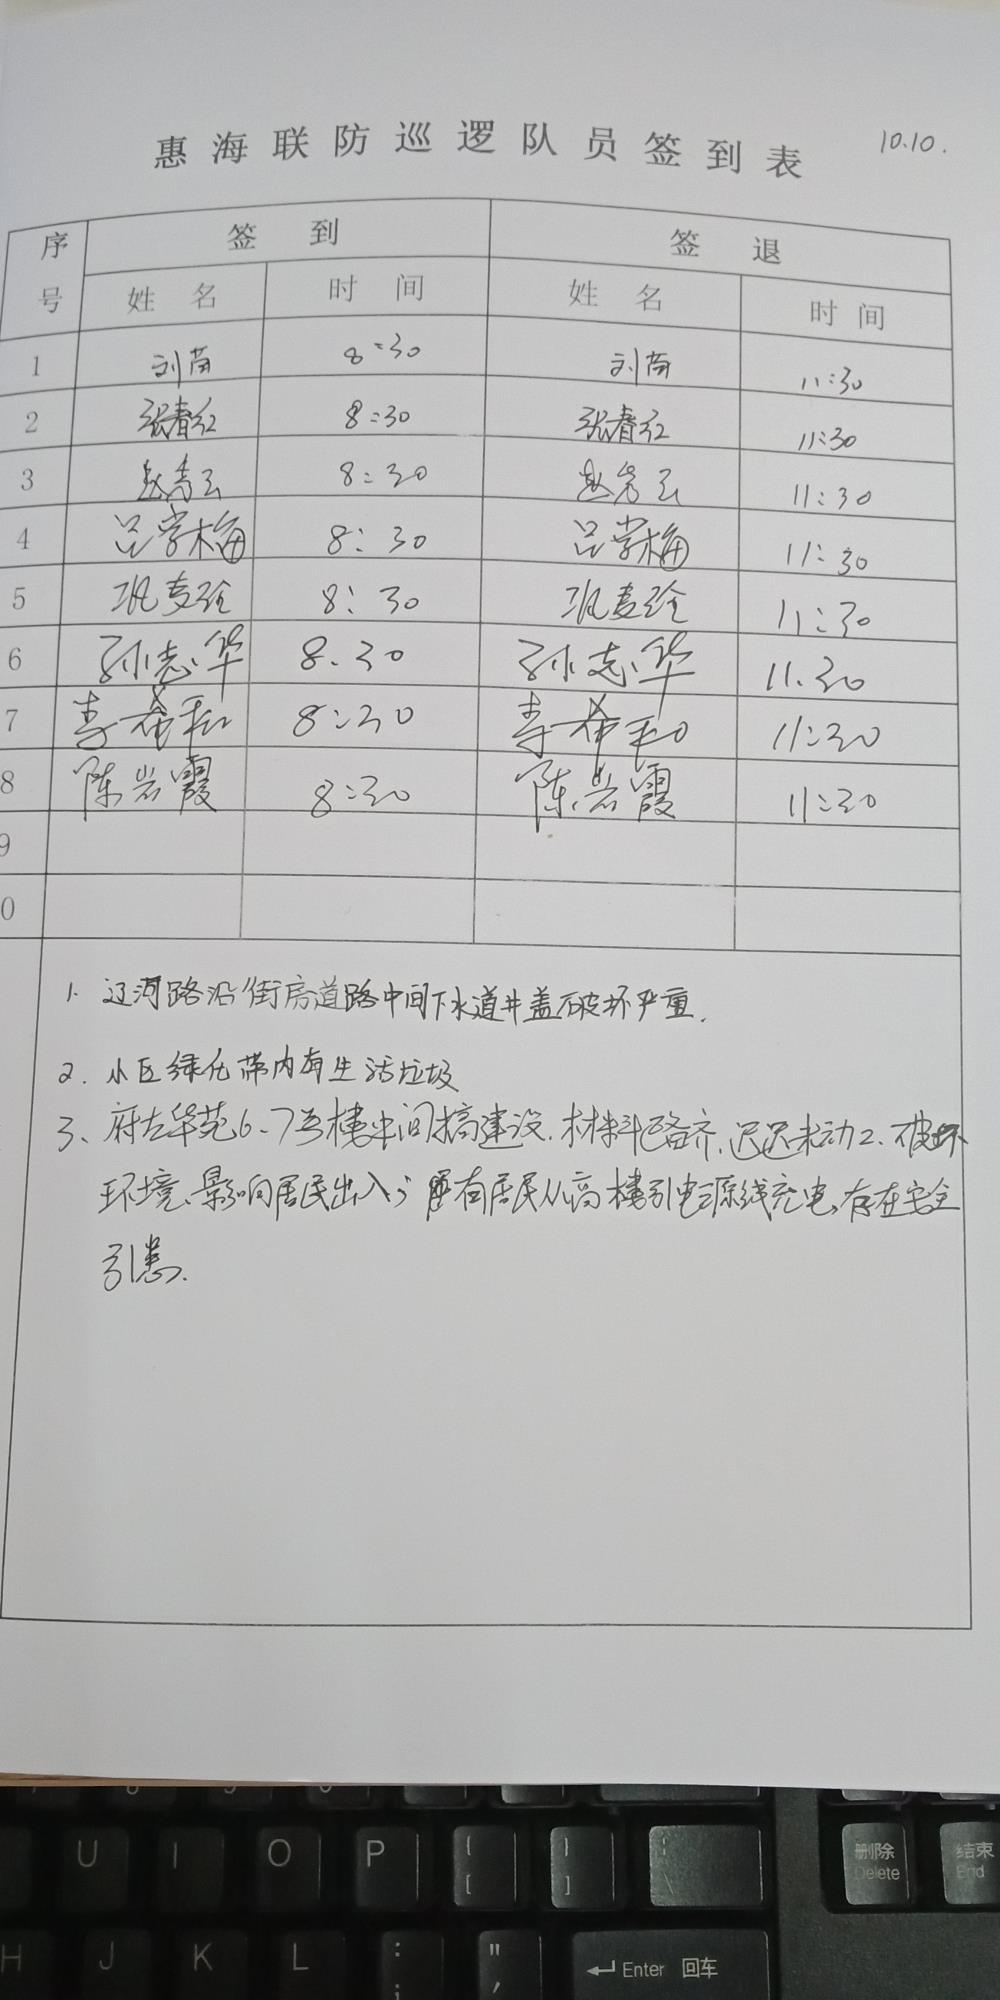 惠海联防巡逻队员签到表 10.10.
序号 签到 签退
姓名 时间 姓名 时间
1 刘苗 8:30 刘苗 11:30
2 张春红 8:30 张春红 11:30
3 赵秀云 8:30 赵秀云 11:30
4 吕学梅 8:30 吕学梅 11:30
5 8:30 11:30
6 孙志华 8.30 孙志华 11.30
7 李希和 8:30 李希和 11:30
8 陈岩霞 8:30 陈岩霞 11:30
9
0
1. 辽河路沿街房道路中间下水道井盖破坏严重.
2. 小区绿化带内有生活垃圾
3、府左华苑6、7号楼中间搞建设.材料已备齐,迟迟未动工.破坏
环境、影响居民出入;有居民从高楼引电源线充电,存在安全
引患.
U I O P { [ } ] 删除 Delete 结束 End
H J K L : ; " ' Enter 回车